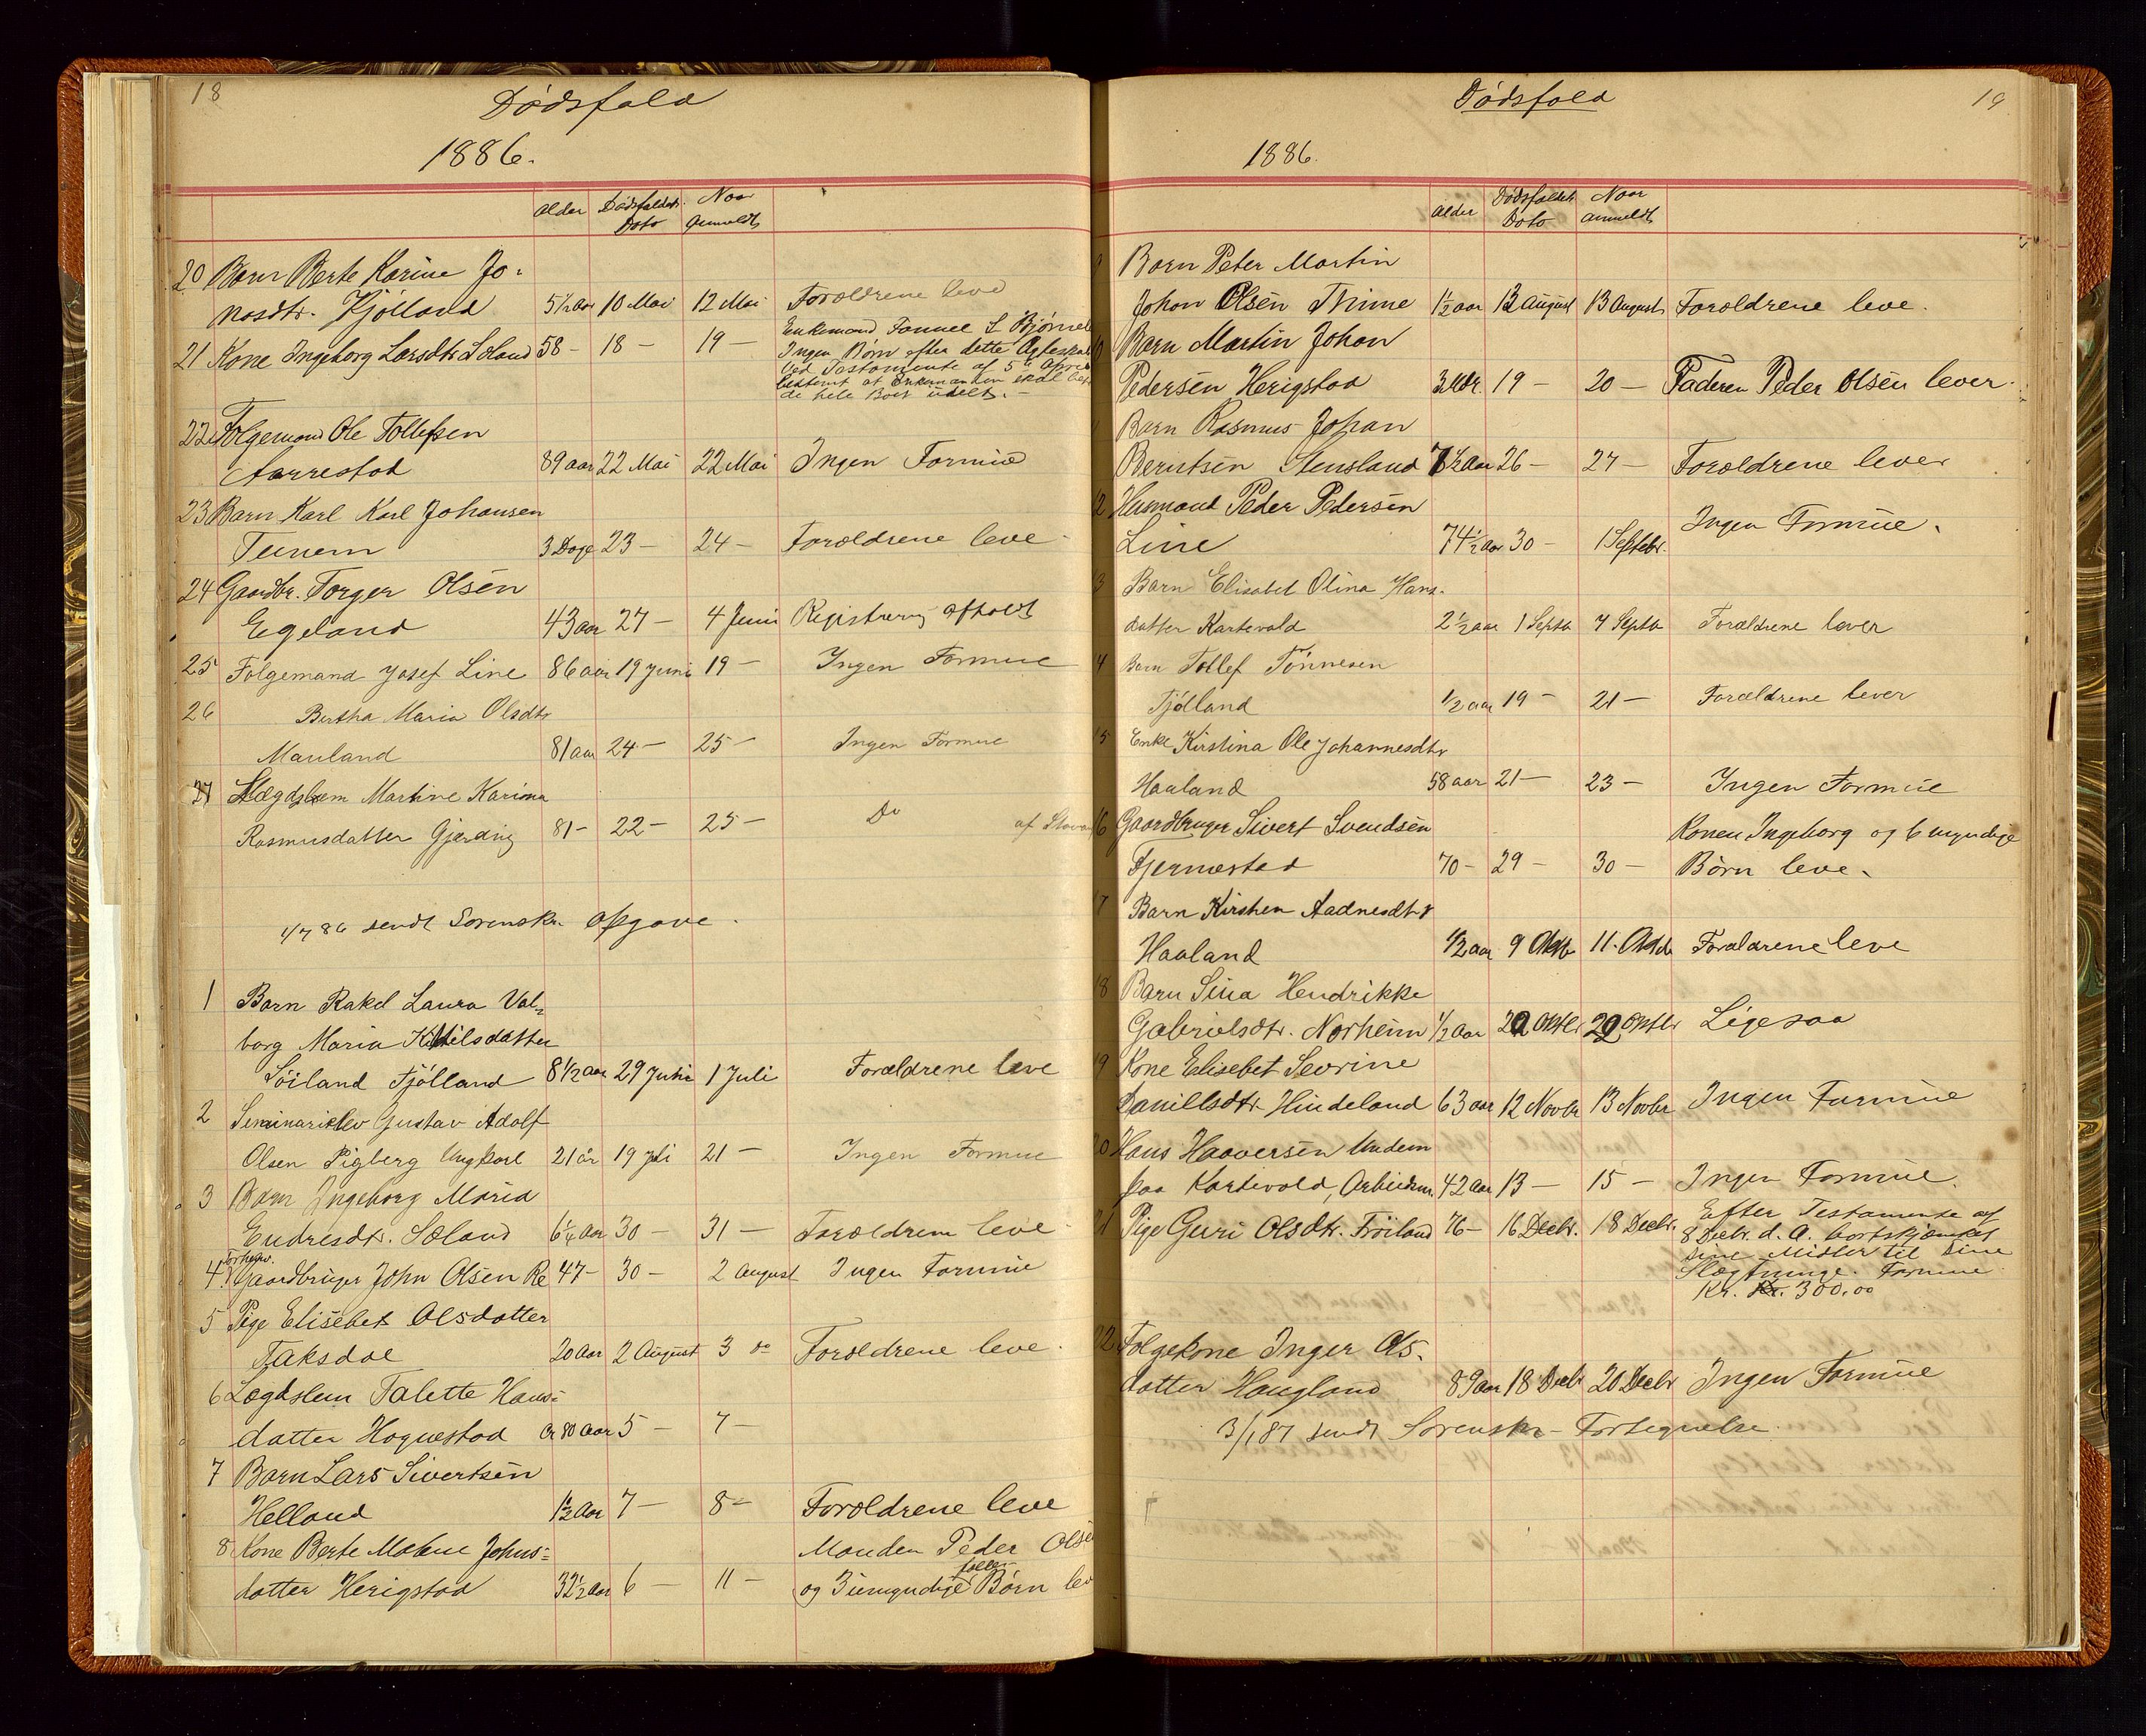 18
Dødsfald
1886.
Alder Dødsfaldets Dato Naar Anmeldt
20 Barn Berte Karine Jo-
nasdtr. Kjølland 5½ aar 10 Mai 12 Mai Forældrene leve
21 Kone Ingeborg Larsdtr Soland 58 - 18 - 19 - Enkemand
Ingen Børn efter dette Ægteskab
Ved Testamente af 5te April
bestemt at Enkemanden skal
de hele Boet udelt. -
22 Følgemand Ole Tollefsen
Aarrestad 89 aar 22 Mai 22 Mai Ingen Formue
23 Barn Karl Karl Johansen
Tunem 3 Dage 23 - 24 - Forældrene leve -
24 Gaardbr. Torger Olsen
Egeland 43 aar 27 - 4 Juni Registrering afholdt
25 Følgemand Josef Line 86 aar 19 Juni 19 - Ingen Formue
26 Bertha Maria Olsdtr
Mauland 81 aar 24 - 25 - Ingen Formue
27 Lægdslem Martine Karina
Rasmusdatter Gjerding 81 - 22 - 25 - Do
1/7 86 sendt Sorenskr. Opgave.
1 Barn Rakel Laura Val-
borg Maria Ketilsdatter
Söiland Fjölland 8½ aar 29 Juni 1 Juli Forældrene leve
2 Seminarielev Gustav Adolf
Olsen Pigberg Ungkarl 21 år 19 Juli 21 - Ingen Formue
3 Barn Ingeborg Maria
Endresdtr. Soland 6¼ aar 30 - 31 - Forældrene leve -
4 Forhenv.
Gaardbruger John Olsen Re 47 - 30 - 2 August Ingen Formue
5 Pige Elisebet Olsdatter
Taksdal 20 aar 2 August 3 do Forældrene leve.
6 Lægdslem Talette Hans-
datter Hognestad Ca 80 aar 5 - 7 -
7 Barn Lars Sivertsen
Helland 1½ aar 7 - 8 - Forældrene leve
8 Kone Berte Malene Johns- Manden Peder Olsen
datter Herigstad 32½ aar 6 - 11 - og 3 umyndige fælles Børn lev
19
Dødsfald
1886.
Alder Dødsfaldets Dato Naar Anmeldt
9 Barn Peter Martin
Johan Olsen Thime 1½ aar 12 August 13 August Forældrene leve.
Barn Martin Johan
Pedersen Herigstad 3 Mdr. 19 - 20 - Faderen Peder Olsen lever.
Barn Rasmus Johan
Berntsen Stensland 7½ aar 26 - 27 - Forældrene lever
12 Husmand Peder Pedersen
Line 74½ aar 30 - 1 Septbr. Ingen Formue.
3 Barn Elisabet Olina Hans-
datter Kartevold 2½ aar 1 Septb 7 Septb Forældrene lever
4 Barn Tollef Tønnesen
Fjölland ½ aar 19 - 21 - Forældrene lever
15 Enke Kirstina Ole Johannesdtr
Haaland 58 aar 21 - 23 - Ingen Formue
af Stava 16 Gaardbruger Sivert Svendsen Konen Ingeborg og 6 myndige
Fjermestad 70 - 29 - 30 - Børn leve.
7 Barn Kirsten Aadnesdtr
Haaland ½ aar 9 Oktb 11. Oktb Forældrene leve
18 Barn Sina Hendrikke
Gabrielsdtr. Norheim ½ aar 20 Oktbr 22 Oktbr Ligesaa
19 Kone Elisebet Sevrine
Danillsdtr. Hindeland 63 aar 12 Novbr 13 Novbr Ingen Formue
20 Hans Haaversen Undem
paa Kartevold, Arbeidsm. 42 aar 13 - 15 - Ingen Formue.
21 Pige Guri Olsdtr. Fröiland 76 - 16 Decbr. 18 Decbr. Efter Testamente af
8 Decbr. d. A. bortskjænket
sine Midler til sine
Slægtninge. Formue
Kr. 300.00
22 Følgekone Inger Ols-
datter Haugland 89 aar 18 Decbr 20 Decbr Ingen Formue
3/1 87 sendt Sorenskr - Fortegnelse.